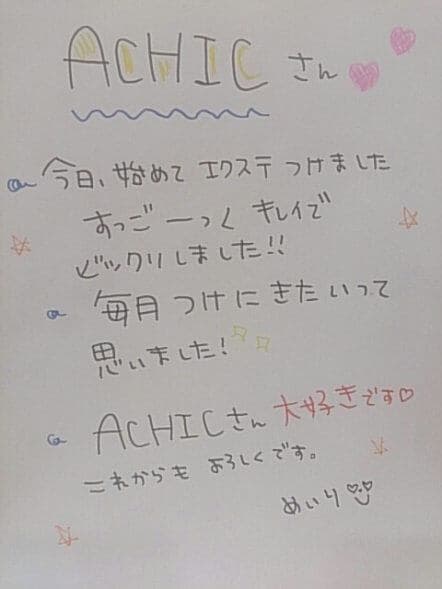 ACHIC さん
今日、始めて エクステ つけました
すっごーっく キレイで
ビックリしました!!
毎月 つけに きたいって
思いました!
ACHICさん 大好きです♡
これからも よろしくです。
めいり